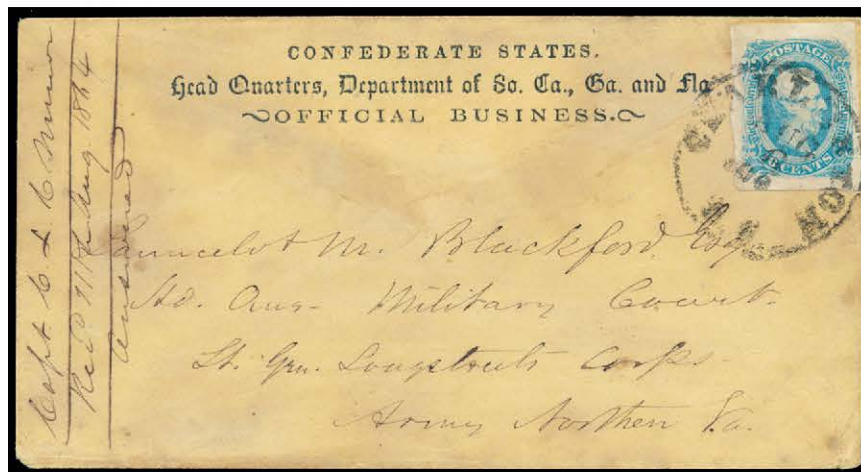 CONFEDERATE STATES.
Head Quarters, Department of So. Ca., Ga. and Fla
OFFICIAL BUSINESS.
POSTAGE
CENTS
Launcelot M. Blackford Esq
Hd. Qrs- Military Court.
Lt. Gen. Longstreets Corps.
Army Northern Va.
Capt C. L. C. Minor
Recd 11th Aug. 1864
Answered